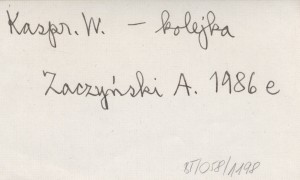 Kaspr. W. – kolejka
Zaczyński A. 1986 e
BT/058/1198